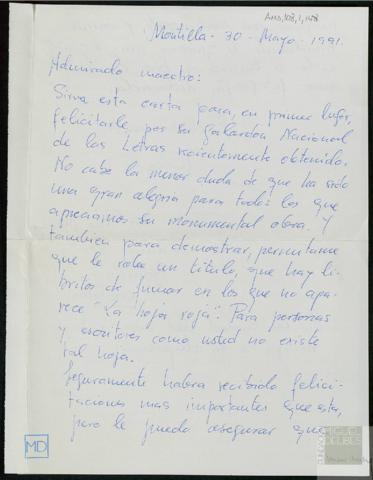 AMD,108,1,148
Montilla - 30 - Mayo - 1991.
Admirado maestro:
Sirva esta carta para, en primer lugar,
felicitarle por su galardón Nacional
de las Letras recientemente obtenido.
No cabe la menor duda de que ha sido
una gran alegria para todos los que
apreciamos su monumental obra. Y
tambien para demostrar, permitame
que le robe un titulo, que hay li-
britos de fumar en los que no apa-
rece "La hoja roja". Para personas
y escritores como usted no existe
tal hoja.
Seguramente habra recibido felici-
taciones mas importantes que esta,
pero le puedo asegurar que
MD
MIGUEL
DELIBES